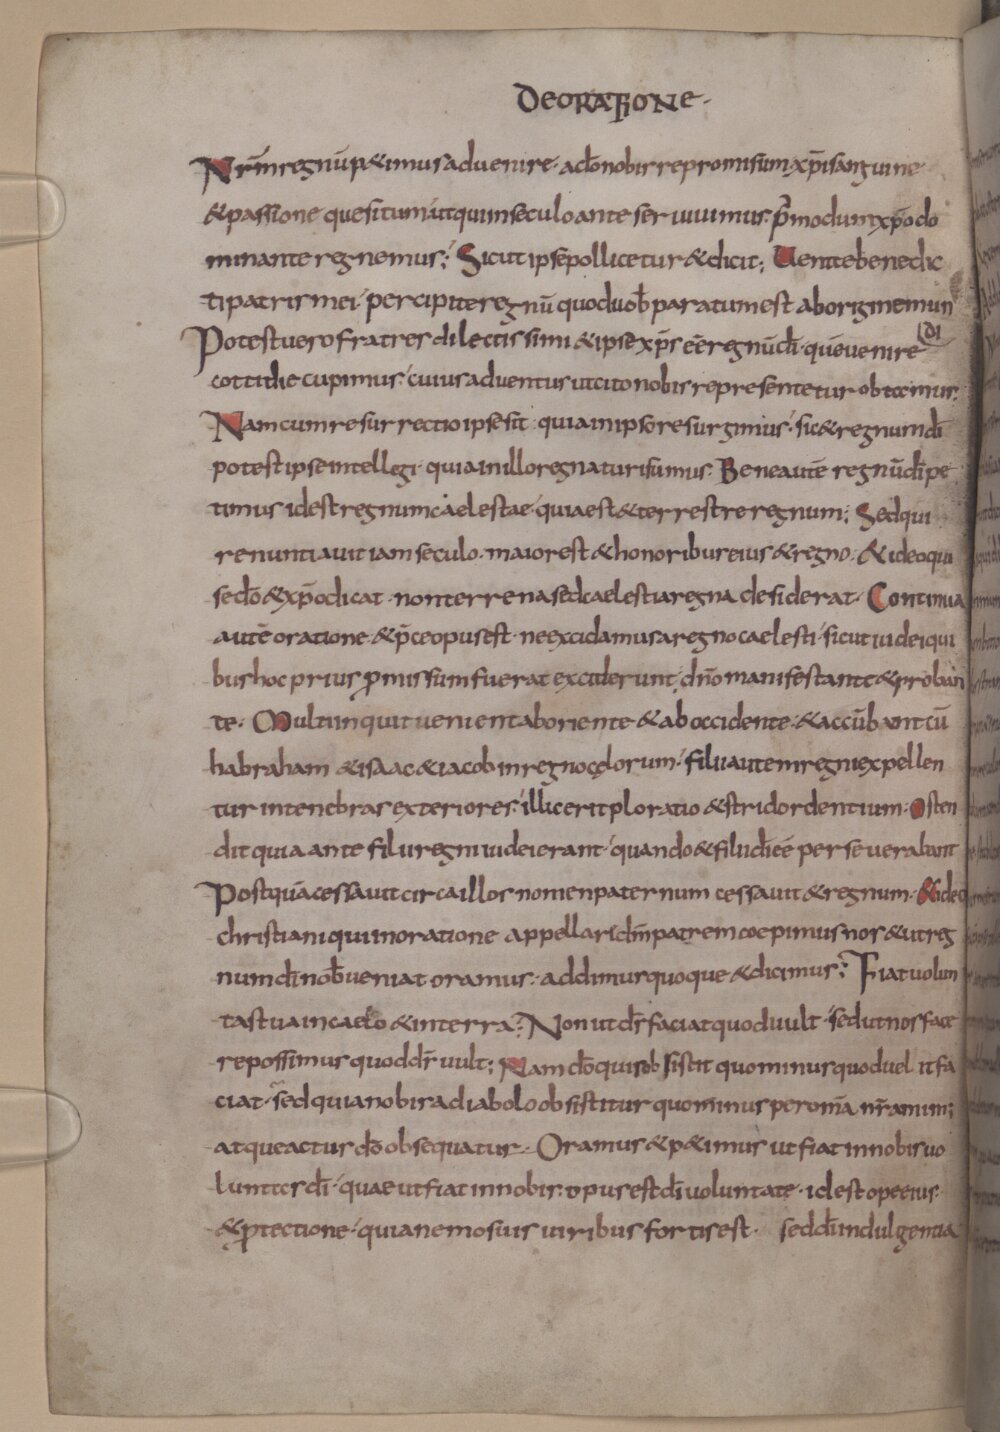 DE ORATIONE·
Nr̄m regnū p&imus aduenire· a dō nobis repromissum xp̄i sanguine
& passione quesitum ut qui in seculo ante seruiuimus· p̄modum xp̄o do
minante regnemus; Sicut ipse pollicetur & dicit; Uenite benedic
ti patris mei· percipite regnū quod uob̄ paratum est ab origine mun
Potest uero fratres dilectissimi & ipse xp̄s eē regnū dī· quē uenire (di
cottidie cupimus· cuius aduentus ut cito nobis representetur obtamus·
Nam cum resurrectio ipse sit· quia in ipso resurgimus· sic & regnum dī
potest ipse intellegi· quia in illo regnaturi sumus· Bene autē regnū dī pe
timus id est regnum caelestae· quia est & terrestre regnum; Sed qui
renuntiauit iam seculo· maior est & honoribus eius & regno· & ideo qui
se dō & xp̄o dicat· non terrena sed caelestia regna desiderat· Continua
autē oratione & p̄ce opus est· ne excidamus a regno caelesti· sicut iudei qui
bus hoc prius ꝓmissum fuerat exciderunt dn̄o manifestante & proban
te· Multi inquit uenient ab oriente & ab occidente· & accūbunt cū
habraham & isaac & iacob in regno cęlorum· filii autem regni expellen
tur in tenebras exteriores· illic erit ploratio & stridor dentium· Osten
dit quia ante filii regni iudei erant· quando & filii dī eē perseuerabant
Postquā cessauit circa illos nomen paternum cessauit & regnum· & ideo
christiani qui in oratione appellari dm̄ patrem coepimus nos & ut reg
num dī nob̄ ueniat oramus· addimus quoque & dicimus; Fiat uolun
tas tua in caelo & in terra; Non ut ds̄ faciat quod uult· sed ut nos face
re possimus quod ds̄ uult; Nam dō quis obsistit quominus quod uelit fa
ciat· sed quia nobis a diabolo obsistitur quominus per omīa nr̄ animus
atque actus dō obsequatur· Oramus & p&imus ut fiat in nobis uo
luntas dī· quae ut fiat in nobis opus est dī uoluntate· id est ope eius
& ꝓtectione· quia nemo suis uiribus fortis est· sed dī indulgentia